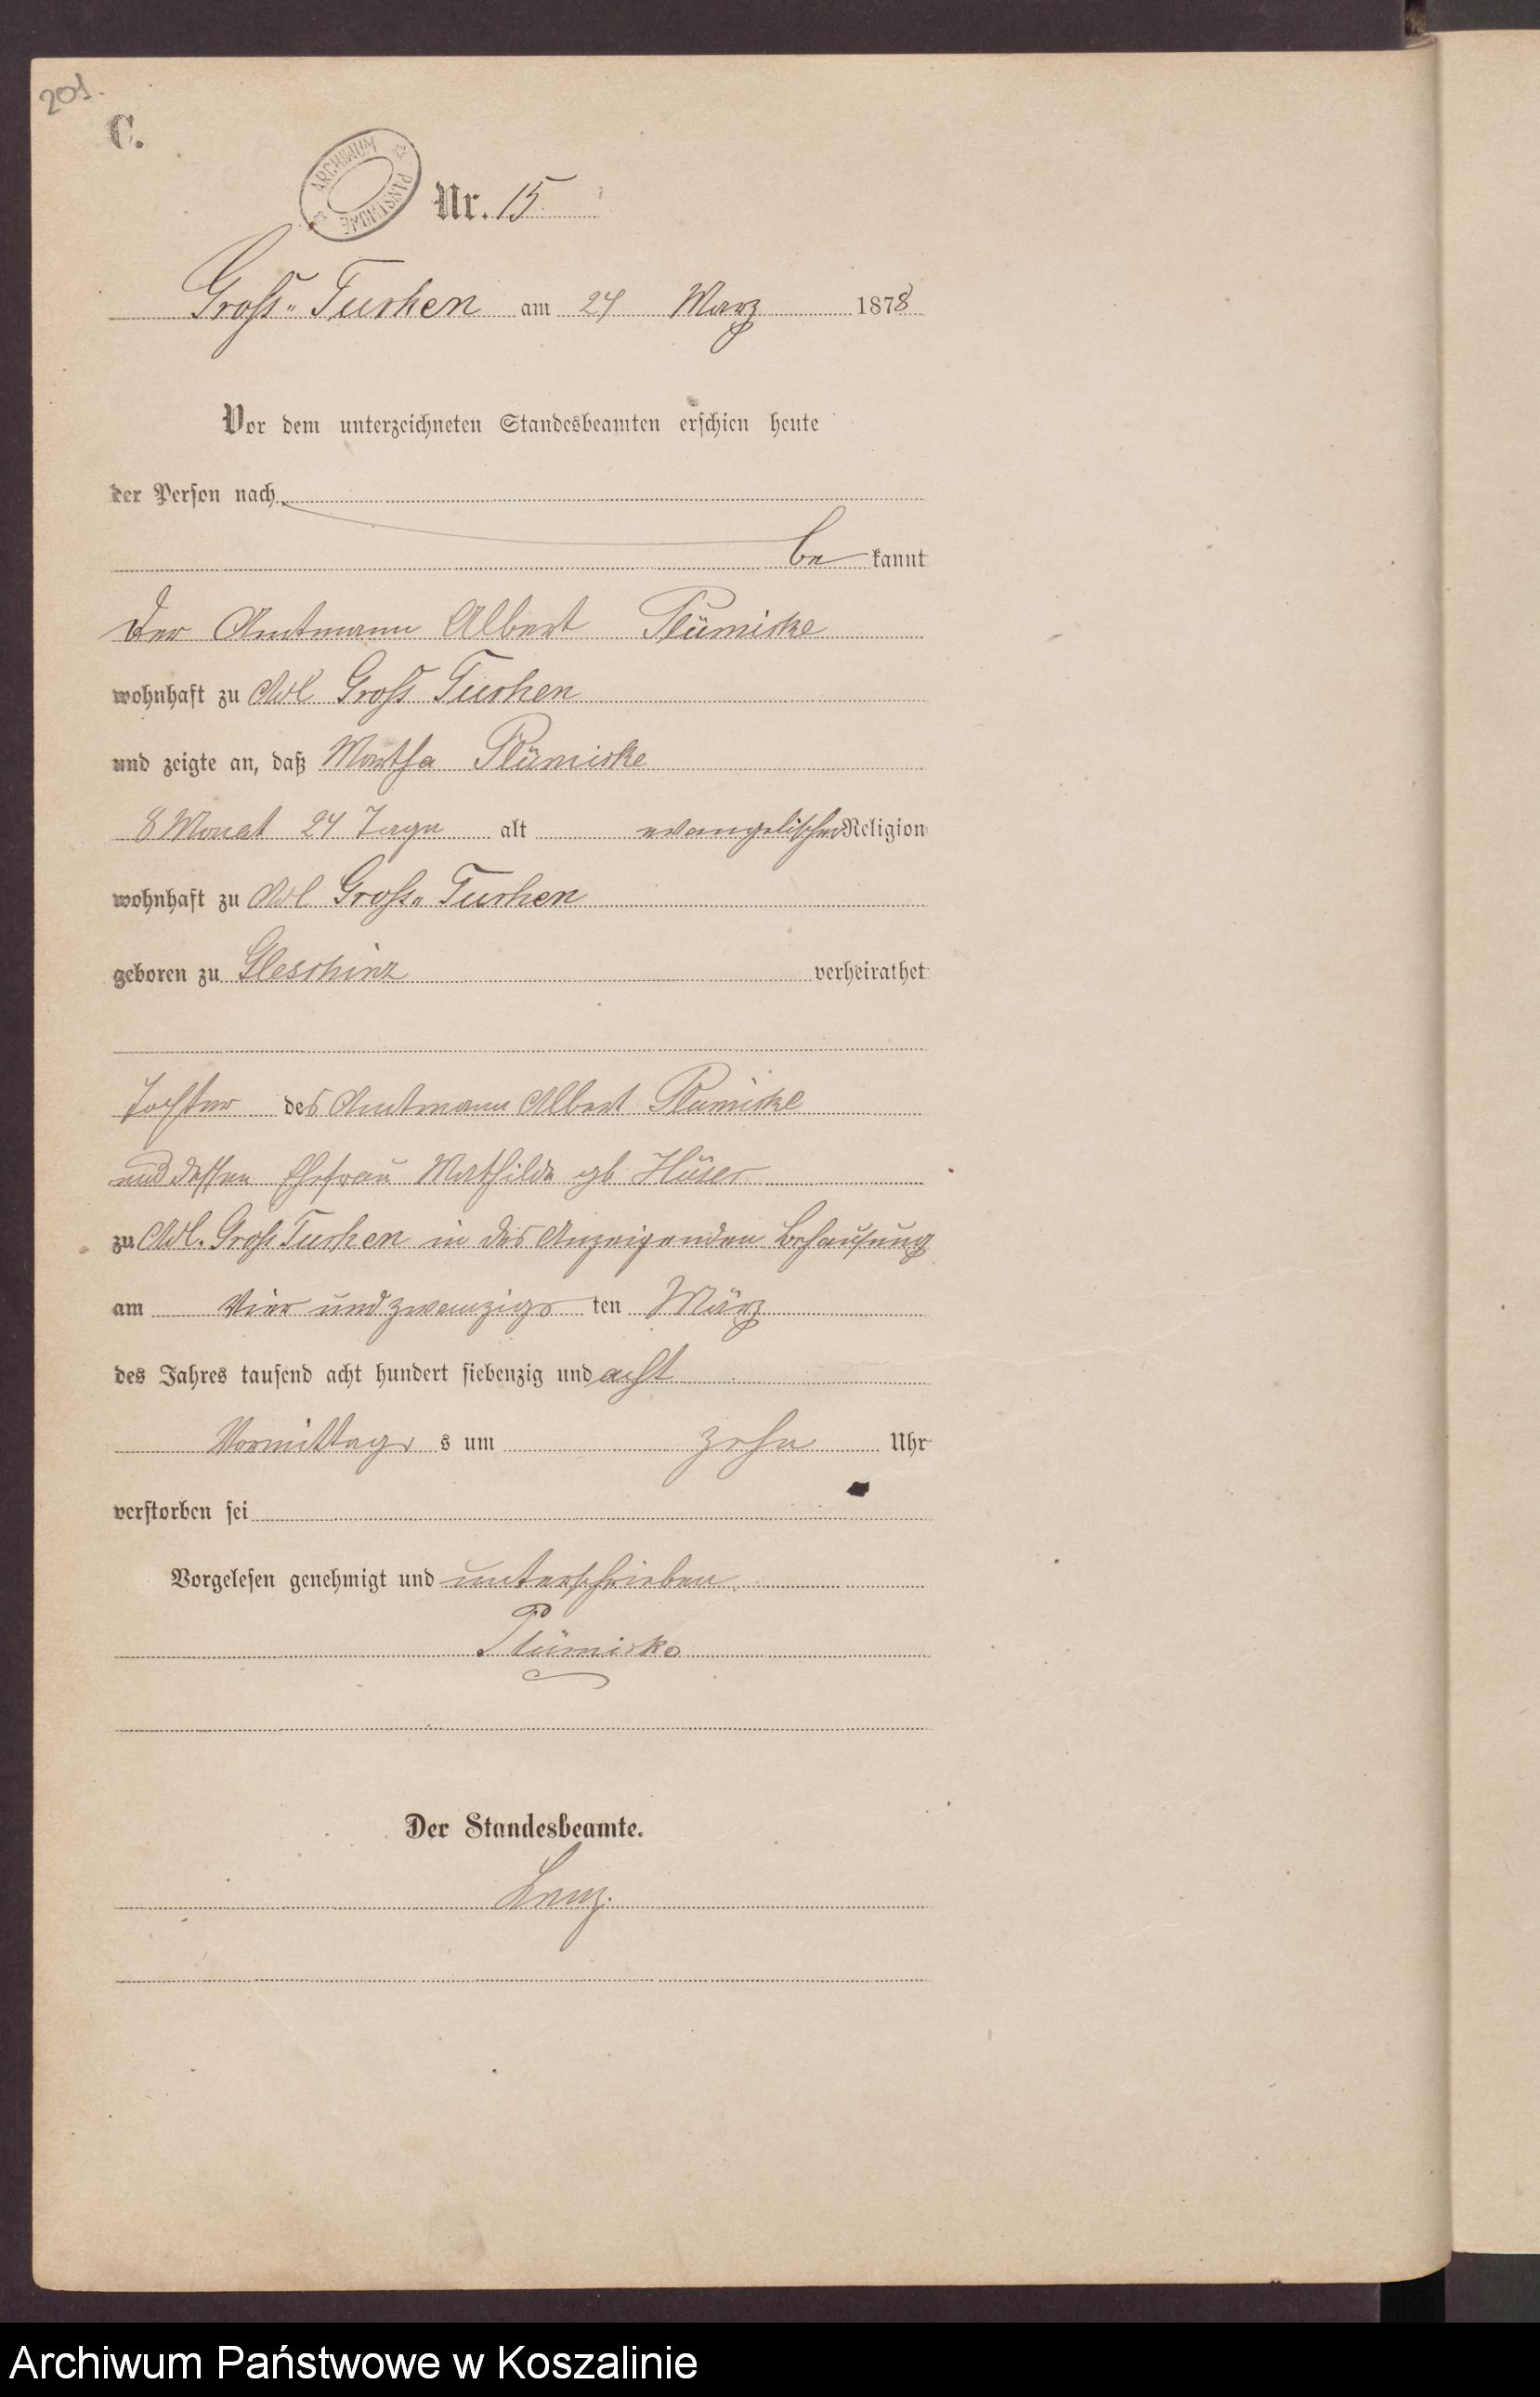 201.
C.
ARCHIWUM PAŃSTWOWE
Nr. 15
Groß-Tuchen am 24 März 1878
Vor dem unterzeichneten Standesbeamten erschien heute
der Person nach
be kannt
Der Amtmann Albert Plümicke
wohnhaft zu Adl Groß Tuchen
und zeigte an, daß Martha Plümicke
8 Monat 24 Tage alt evangelischer Religion
wohnhaft zu Adl Groß-Tuchen
geboren zu Gleschinz verheirathet
Tochter des Amtmann Albert Plümicke
und dessen Ehefrau Mathilde gb Hüser
zu Adl. Groß Tuchen in des Anzeigenden Behausung
am Vier und zwanzigs ten März
des Jahres tausend acht hundert siebenzig und acht
Vormittags s um zehn Uhr
verstorben sei
Vorgelesen genehmigt und unterschrieben
Plümicke
Der Standesbeamte.
Archiwum Państwowe w Koszalinie